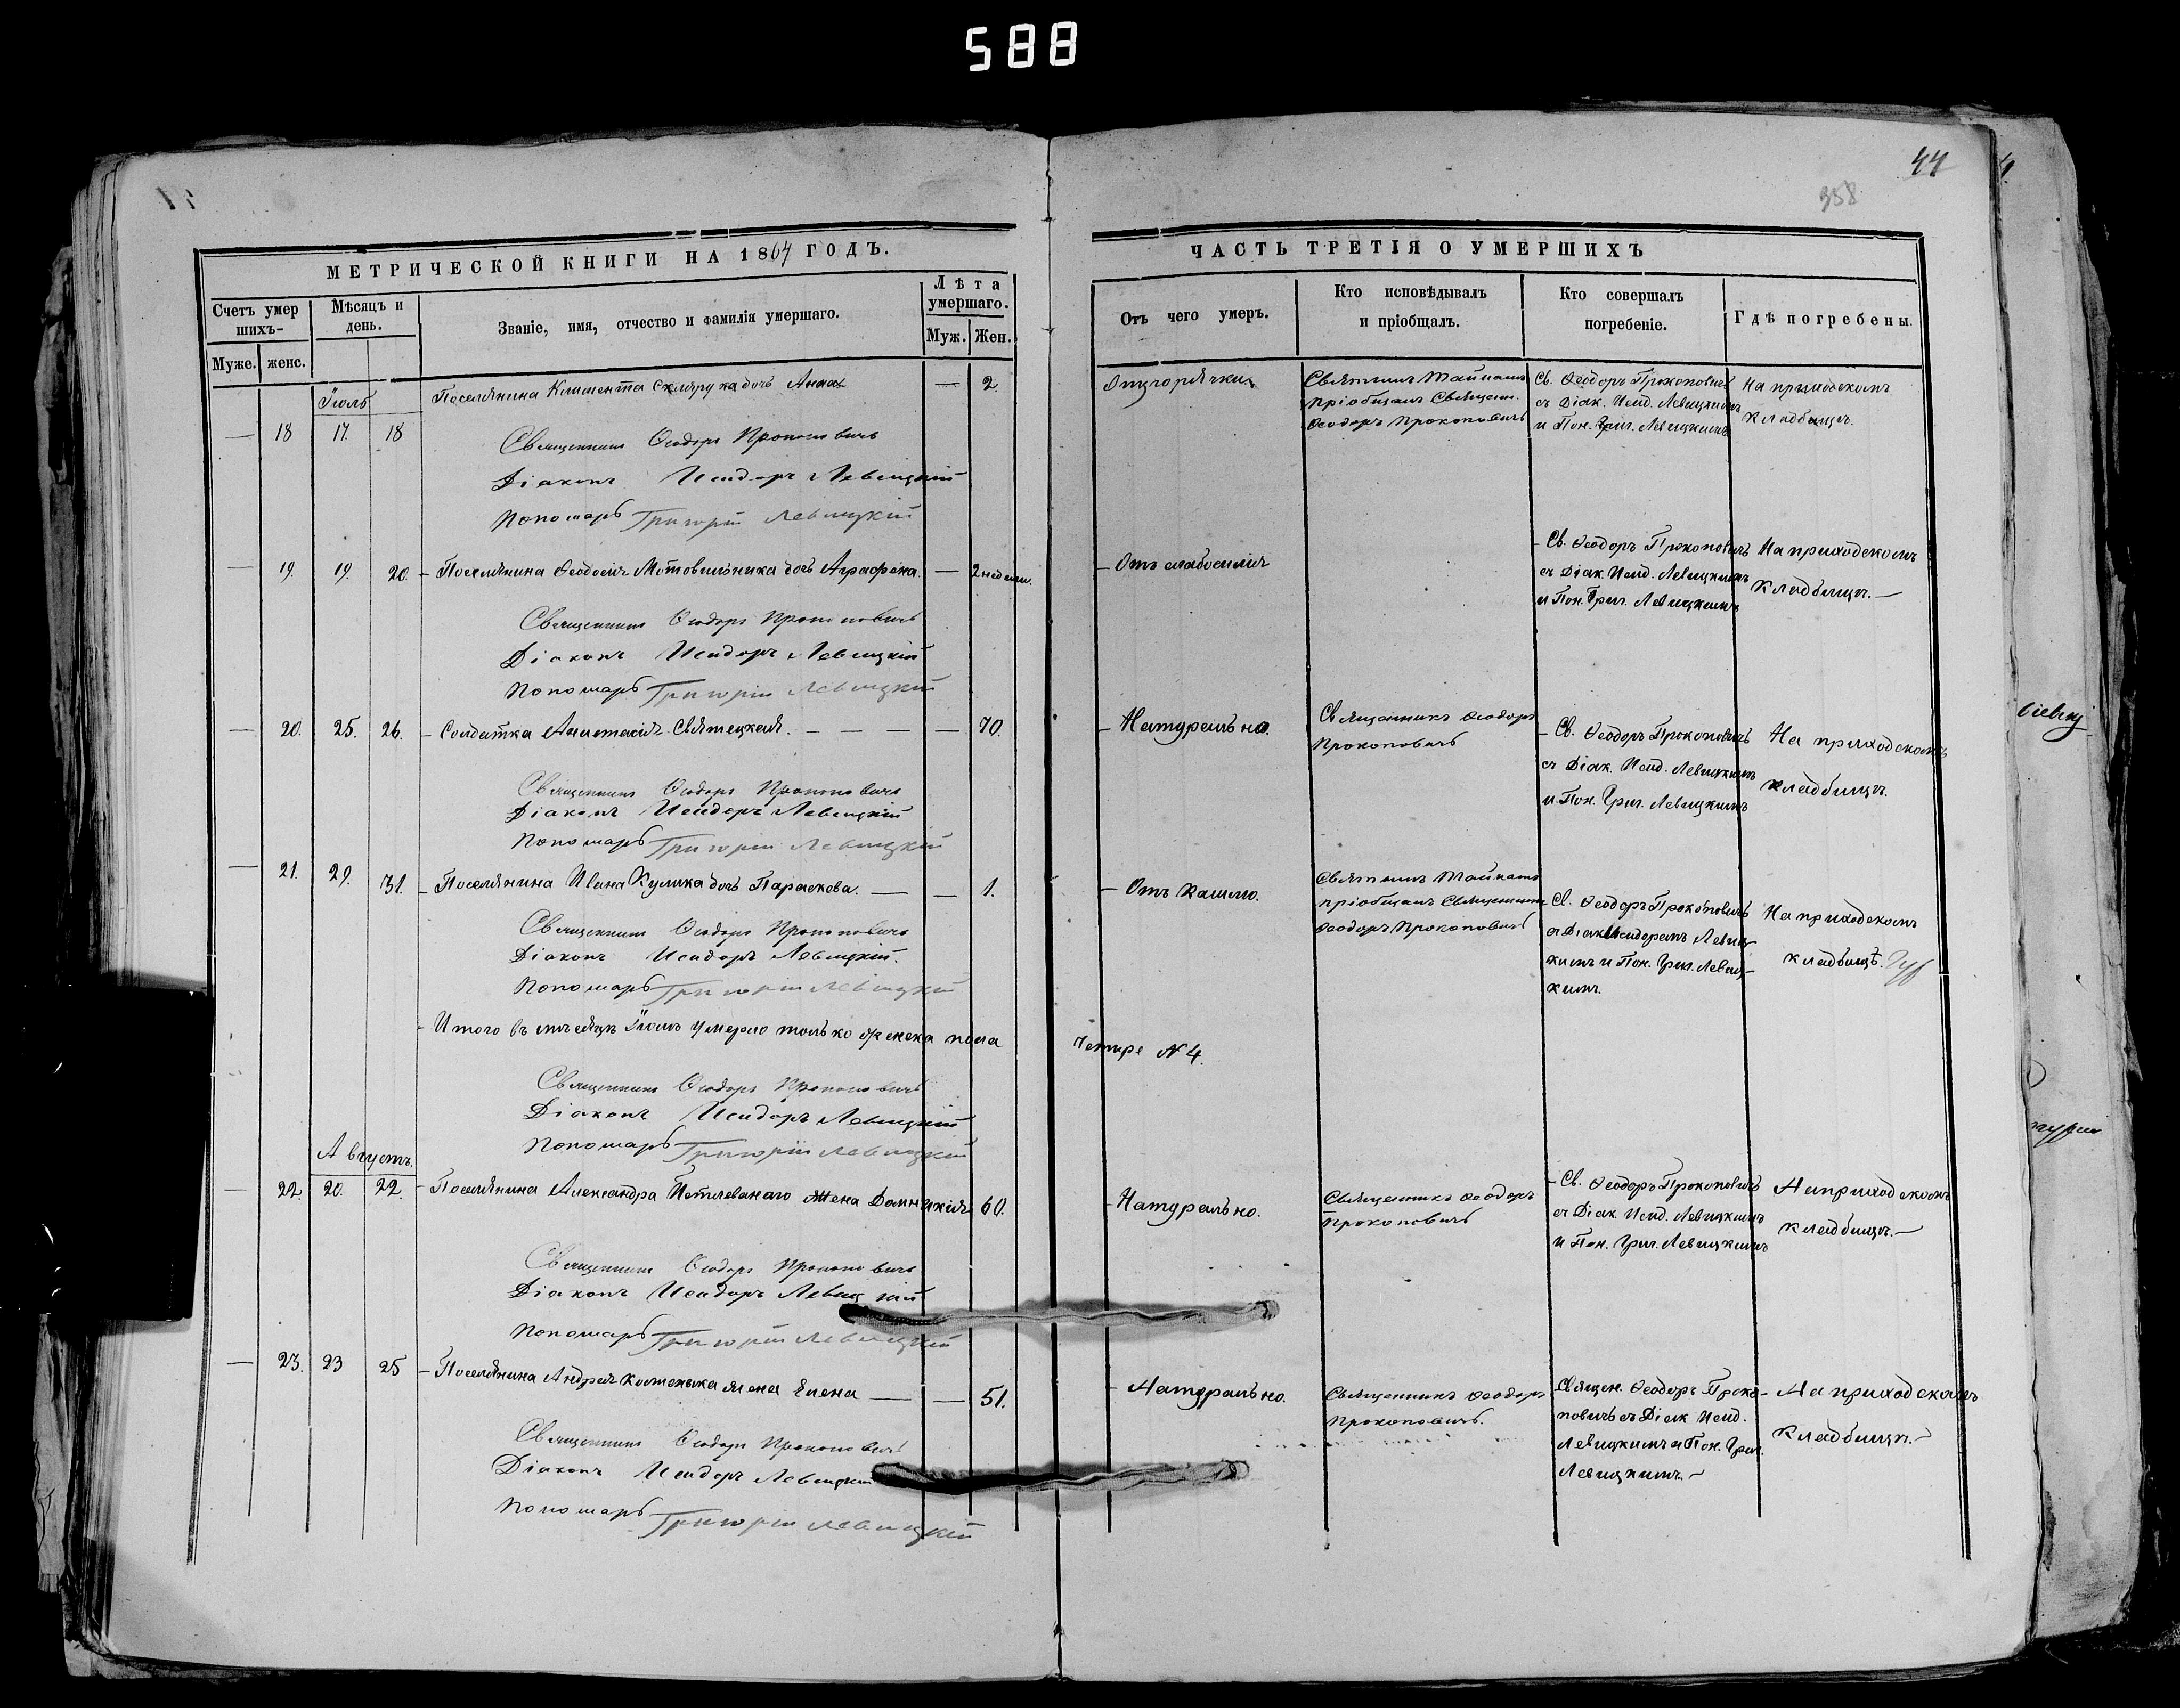 588
44
358
МЕТРИЧЕСКОЙ КНИГИ НА 1864 ГОДЪ.
Счетъ умер
шихъ-
Мѣсяцъ и
день.
Званіе, имя, отчество и фамилія умершаго.
Лѣта
умершаго.
Муже. женс.
Муж. Жен.
Іюль
Поселянина Климента Склярука дочь Анна — 2.
— 18 17. 18
Священникъ Ѳеодоръ Прокоповичъ
Діаконъ Исидоръ Левицкій
Пономарь Григорій Левицкій
— 19. 19. 20. – Поселянина Ѳеодосія Мотовильника дочь Аграфена. — 2 недели.
Священникъ Ѳеодоръ Прокоповичъ
Діаконъ Исидоръ Левицкій
Пономарь Григорій Левицкій
— 20. 25. 26. – Солдатка Анастасія Святецкая. — — — — 70.
Священникъ Ѳеодоръ Прокоповичъ
Діаконъ Исидоръ Левицкій
Пономарь Григорій Левицкій
— 21. 29. 31. – Поселянина Ивана Кулика дочь Параскева. — — 1.
Священникъ Ѳеодоръ Прокоповичъ
Діаконъ Исидоръ Левицкій.
Пономарь Григорій Левицкій
– Итого въ мѣсяцѣ Іюлѣ умерло только женска пола
Священникъ Ѳеодоръ Прокоповичъ
Діаконъ Исидоръ Левицкій
Пономарь Григорій Левицкій
Августъ.
— 22. 20. 22. – Поселянина Александра жена Домникія 60.
Священникъ Ѳеодоръ Прокоповичъ
Діаконъ Исидоръ Левицкій
Пономарь Григорій Левицкій
— 23. 23 25 – Поселянина Андрея жена Елена — — 51.
Священникъ Ѳеодоръ Прокоповичъ
Діаконъ Исидоръ Левицкій
Пономарь Григорій Левицкій
ЧАСТЬ ТРЕТІЯ О УМЕРШИХЪ
Отъ чего умеръ.
Кто исповѣдывалъ
и пріобщалъ.
Кто совершалъ
погребеніе.
Гдѣ погребены.
Отъ горячки
Святыхъ Тайнамъ
пріобщалъ Священ.
Ѳеодоръ Прокоповичъ
Св. Ѳеодоръ Прокоповичъ
съ Діак. Исид. Левицкимъ
и Пон. Григ. Левицкимъ
На приходскомъ
кладбищѣ.
– Отъ слабосилія
– Св. Ѳеодоръ Прокоповичъ
съ Діак. Исид. Левицкимъ
и Пон. Григ. Левицкимъ
На приходскомъ
кладбищѣ. —
– Натурально.
Священникъ Ѳеодоръ
Прокоповичъ
– Св. Ѳеодоръ Прокоповичъ
съ Діак. Исид. Левицкимъ
и Пон. Григ. Левицкимъ
На приходскомъ
кладбищѣ.
– Отъ кашлю.
Святыхъ Тайнамъ
пріобщалъ Священникъ
Ѳеодоръ Прокоповичъ
Св. Ѳеодоръ Прокоповичъ
съ Діак. Исидоромъ Левиц-
кимъ и Пон. Григ. Левиц-
кимъ.
На приходскомъ
кладбищѣ.
Четыре № 4.
– Натурально.
Священникъ Ѳеодоръ
Прокоповичъ
– Св. Ѳеодоръ Прокоповичъ
съ Діак. Исид. Левицкимъ
и Пон. Григ. Левицкимъ
На приходскомъ
кладбищѣ. —
– Натурально.
Священникъ Ѳеодоръ
Прокоповичъ.
Священ. Ѳеодоръ Проко-
повичъ съ Діак Исид.
Левицкимъ и Пон. Григ.
Левицкимъ. –
На приходскомъ
кладбищѣ. –